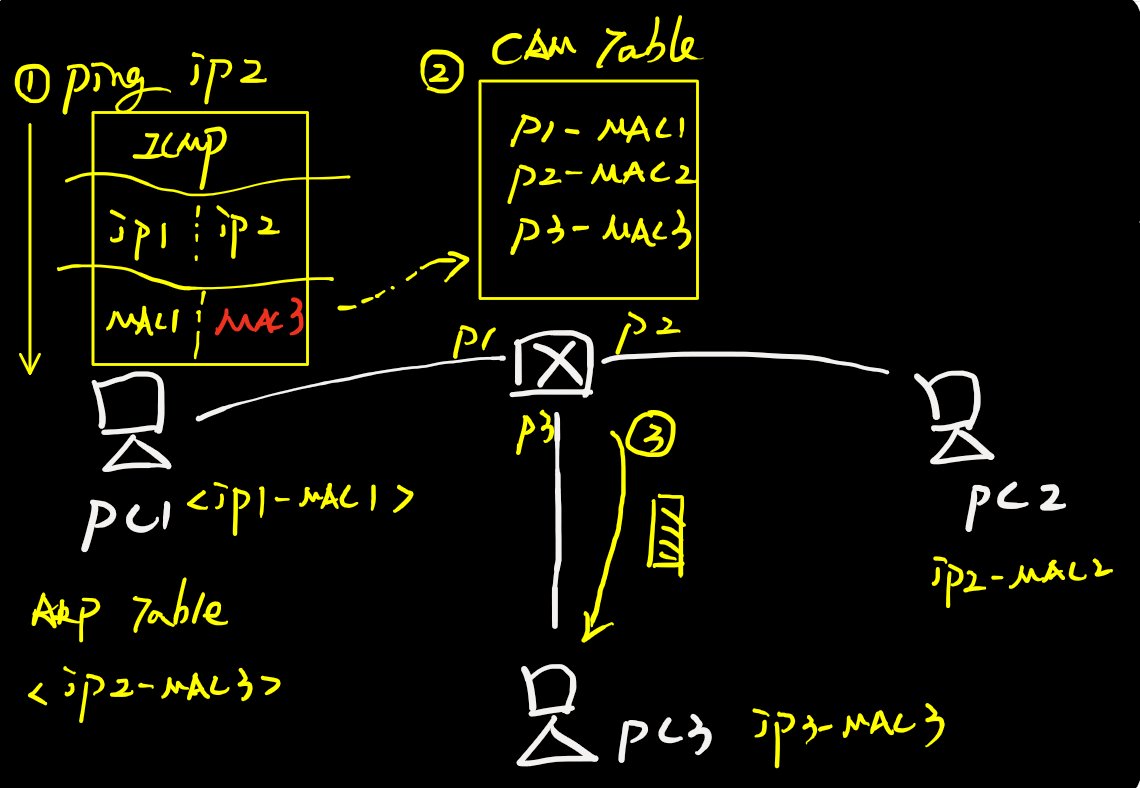 ① Ping ip2
ICMP
ip1 ip2
MAC1 MAC3
② CAM Table
P1-MAC1
P2-MAC2
P3-MAC3
P1
P2
P3
③
PC1 <ip1-MAC1>
ARP Table
<ip2-MAC3>
PC2
ip2-MAC2
PC3 ip3-MAC3